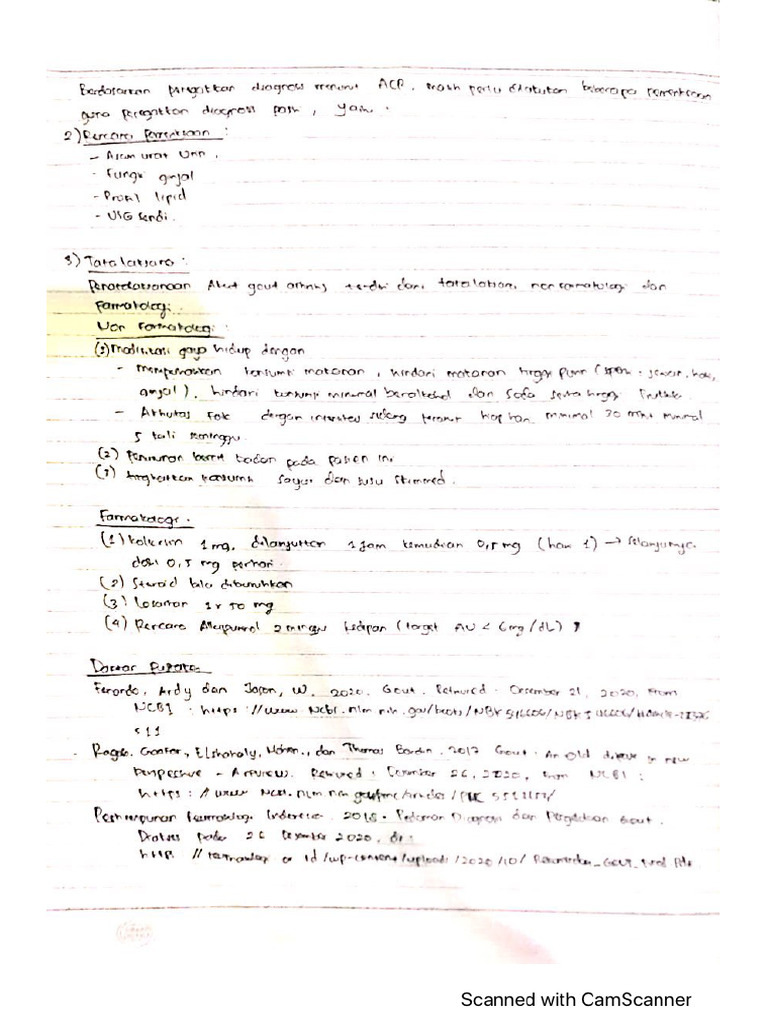 Berdasarkan penegakkan diagnosis menurut ACR, masih perlu dilakukan beberapa pemeriksaan
guna penegakkan diagnosis pasti, yaitu :
2) Rencana Pemeriksaan :
- Asam urat Urin.
- Fungsi ginjal
- Profil lipid
- USG sendi.
3) Tatalaksana :
Penatalaksanaan Akut gout arthritis terdiri dari, tatalaksana non farmatologi dan
Farmatologi.
Non Farmatologi :
(1) Modifikasi gaya hidup dengan
- konsumsi makanan, hindari makanan tinggi purin ( : jeroan, hati,
ginjal), hindari konsumsi minimal beralkohol dan soda serta tinggi fruktosa.
- Aktivitas fisik dengan intensitas sedang tiap hari minimal 30 menit minimal
5 kali seminggu.
(2) Penurunan berat badan pada pasien ini
(3) tingkatkan konsumsi sayur dan susu skimmed.
Farmatologi.
(1) Kolkisin 1 mg, dilanjutkan 1 jam kemudian 0,5 mg (hari 1) → selanjutnya
dosis 0,5 mg perhari.
(2) Steroid bila dibutuhkan
(3) Losartan 1 x 50 mg
(4) Rencana Allopurinol 2 minggu kedepan (target AU < 6 mg/dL)
Daftar Pustaka
Ardy dan Jason, W. 2020. Gout. Retrieved : December 21, 2020, from
NCBI : https://www.ncbi.nlm.nih.gov/books/
Thomas Bardin. 2017 Gout : An old disease in new
perspective - A review. Retrieved : December 26, 2020, from NCBI :
https://www.ncbi.nlm.nih.gov/pmc/articles/PMC
Perhimpunan Reumatologi Indonesia. 2018. Pedoman Diagnosis dan Pengelolaan Gout.
Diakses pada 26 Desember 2020, di :
http://reumatologi.or.id/wp-content/uploads/2020/10/
Scanned with CamScanner